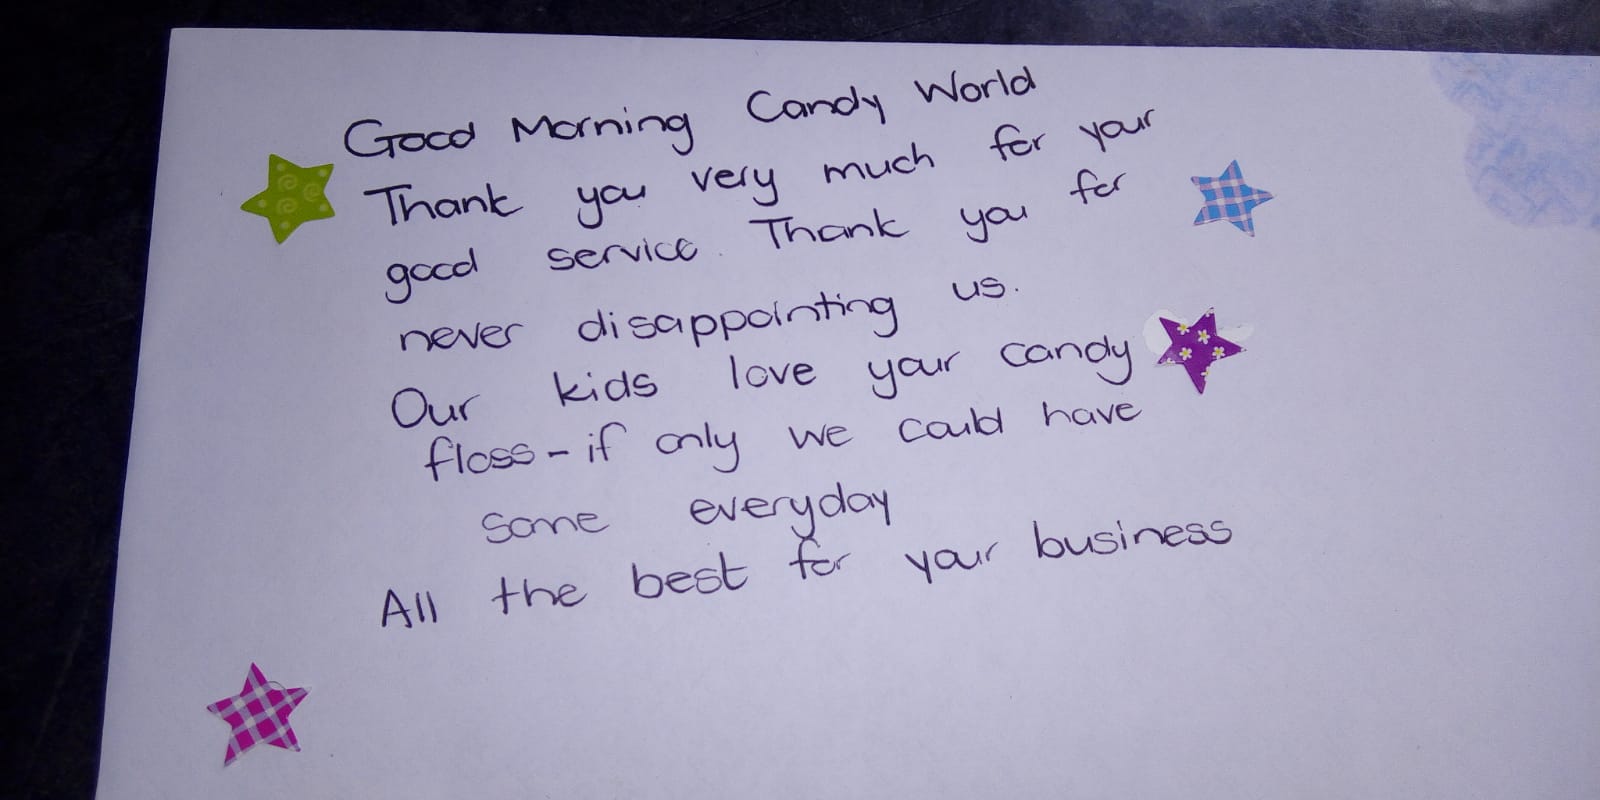 Good Morning Candy World
Thank you very much for your
good service. Thank you for
never disappointing us.
Our kids love your candy
floss - if only we could have
some everyday
All the best for your business